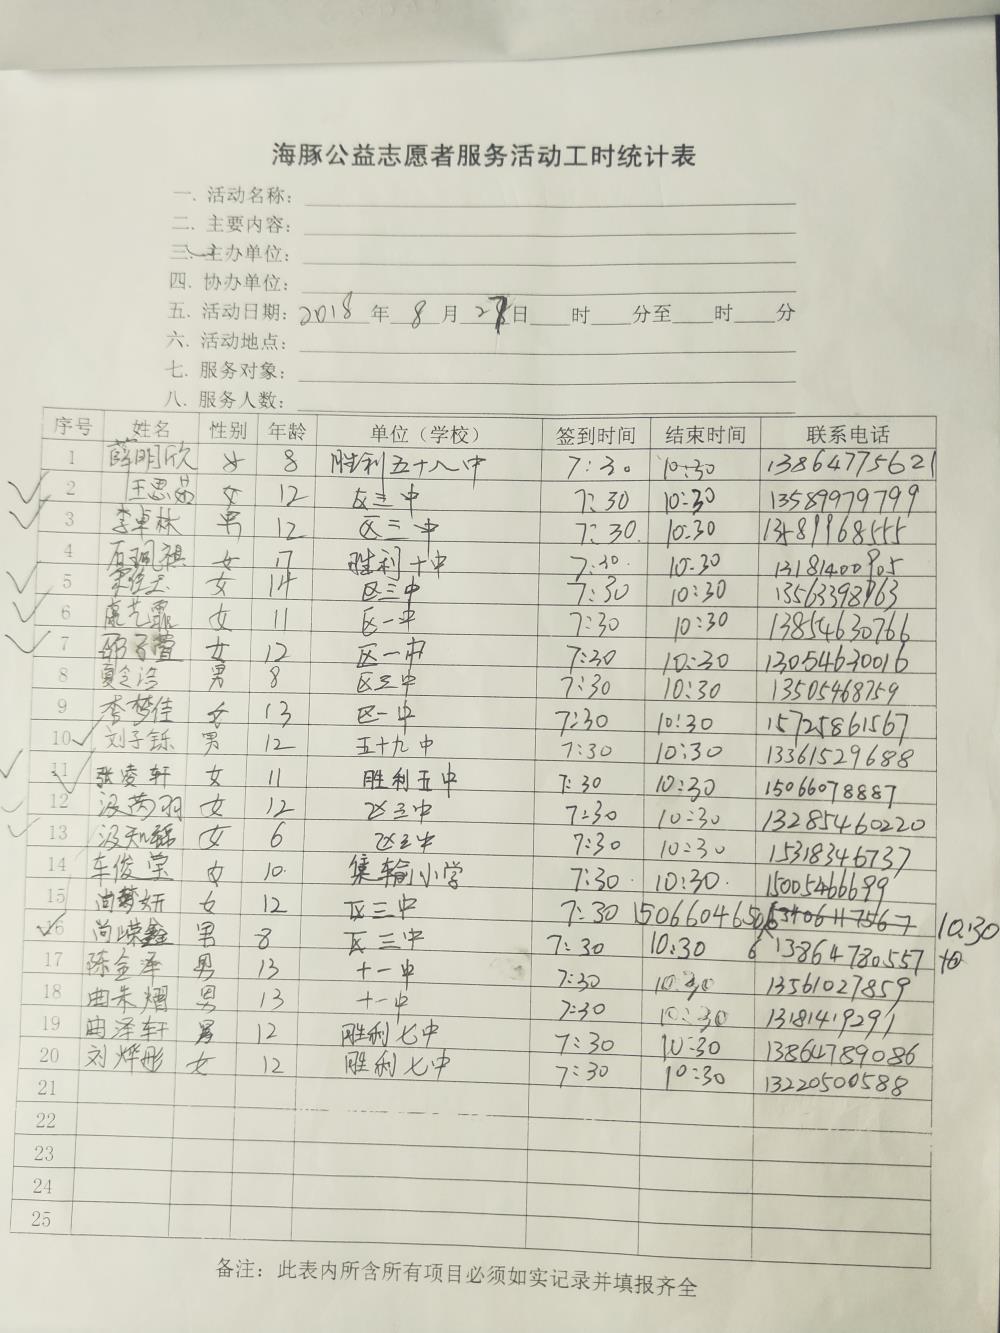 海豚公益志愿者服务活动工时统计表
一. 活动名称:
二. 主要内容:
三. 主办单位:
四. 协办单位:
五. 活动日期: 2018 年 8 月 2 日 时 分至 时 分
六. 活动地点:
七. 服务对象:
八. 服务人数:
序号 姓名 性别 年龄 单位（学校） 签到时间 结束时间 联系电话
1 薛明欣 女 8 胜利五十八中 7:30 10:30 13864775621
2 王思茹 女 12 区三中 7:30 10:30 13589979799
3 李卓林 男 12 区三中 7:30 10:30
4 女 17 胜利十中 7:30 10:30
5 女 14 区三中 7:30 10:30
6 康艺霏 女 11 区一中 7:30 10:30 13854630766
7 邵子萱 女 12 区一中 7:30 10:30 13054630016
8 男 8 区三中 7:30 10:30 13505468759
9 李梦佳 女 13 区一中 7:30 10:30 15725861567
10 刘子铄 男 12 五十九中 7:30 10:30 13361529688
11 张凌轩 女 11 胜利五中 7:30 10:30 15066078887
12 女 12 区三中 7:30 10:30 13285460220
13 女 6 区三中 7:30 10:30 15318346737
14 车俊莹 女 10 集输小学 7:30 10:30 15005466699
15 曲梦妍 女 12 区三中 7:30 10:30
16 尚嵘鑫 男 8 区三中 7:30 10:30 13864780557
17 陈金泽 男 13 十一中 7:30 10:30 13561027859
18 曲朱熠 男 13 十一中 7:30 10:30 13181419291
19 曲泽轩 男 12 胜利七中 7:30 10:30 13864789086
20 刘烨彤 女 12 胜利七中 7:30 10:30 13220500588
21
22
23
24
25
备注: 此表内所含所有项目必须如实记录并填报齐全